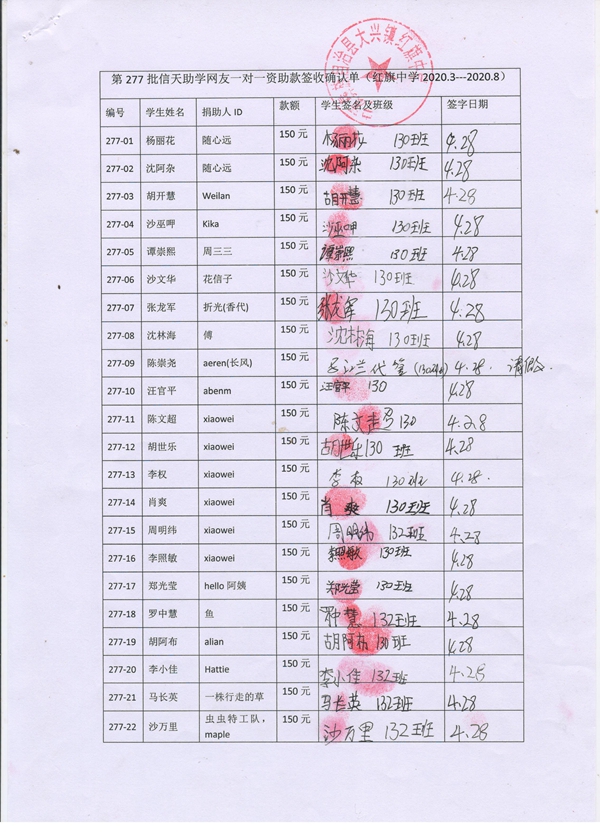 治县大兴镇红旗中
第 277 批信天助学网友一对一资助款签收确认单（红旗中学 2020.3---2020.8）
编号 学生姓名 捐助人 ID 款额 学生签名及班级 签字日期
277-01 杨丽花 随心远 150 元 杨丽花 130班 4.28
277-02 沈阿杂 随心远 150 元 沈阿杂 130班 4.28
277-03 胡开慧 Weilan 150 元 胡开慧 130班 4.28
277-04 沙巫呷 Kika 150 元 沙巫呷 130班 4.28
277-05 谭崇熙 周三三 150 元 谭崇熙 130班 4.28
277-06 沙文华 花信子 150 元 沙文华 130班 4.28
277-07 张龙军 折光(香代) 150 元 张龙军 130班 4.28
277-08 沈林海 傅 150 元 沈林海 130班 4.28
277-09 陈崇尧 aeren(长风) 150 元 代签 4.28.
277-10 汪官平 abenm 150 元 汪官平 130 4.28
277-11 陈文超 xiaowei 150 元 陈文超 130 4.28
277-12 胡世乐 xiaowei 150 元 胡世乐 130 班 4.28
277-13 李权 xiaowei 150 元 李权 130班 4.28.
277-14 肖爽 xiaowei 150 元 肖爽 130班 4.28
277-15 周明纬 xiaowei 150 元 周明纬 132班 4.28
277-16 李照敏 xiaowei 150 元 李照敏 130班 4.28
277-17 郑光莹 hello 阿姨 150 元 郑光莹 130班 4.28
277-18 罗中慧 鱼 150 元 罗中慧 132班 4.28
277-19 胡阿布 alian 150 元 胡阿布 130班 4.28
277-20 李小佳 Hattie 150 元 李小佳 132班 4.28
277-21 马长英 一株行走的草 150 元 马长英 132班 4.28
277-22 沙万里 虫虫特工队， 150 元 沙万里 132班 4.28
maple